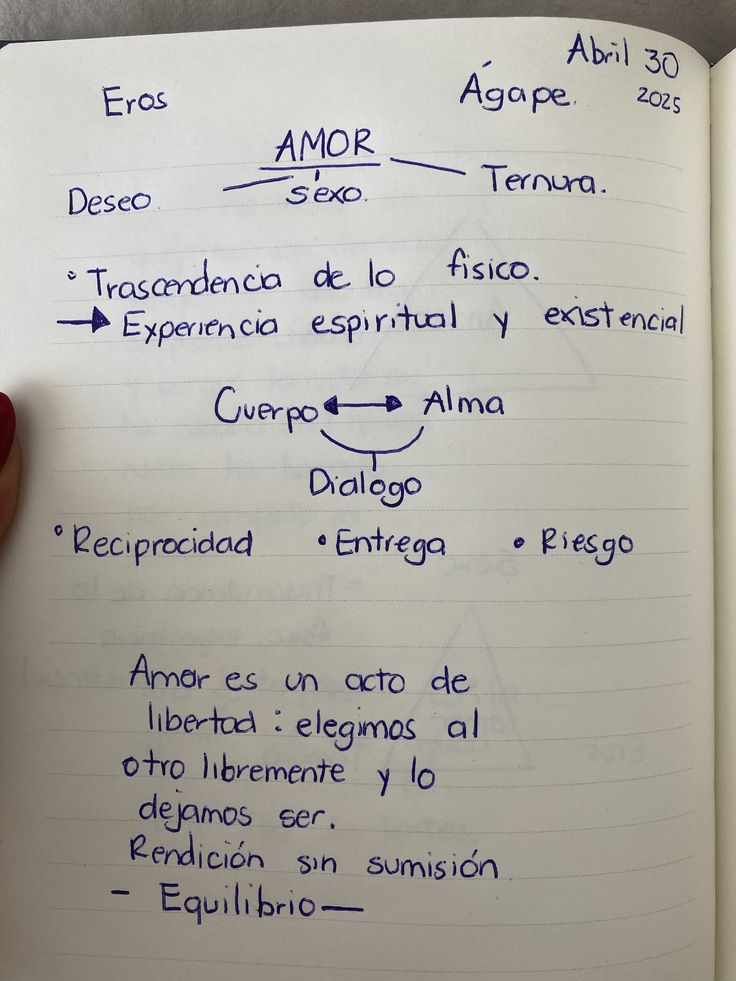 Abril 30
2025
Eros Ágape.
AMOR
Deseo. sexo. Ternura.
• Trascendencia de lo fisico.
→ Experiencia espiritual y existencial
Cuerpo ↔ Alma
Dialogo
• Reciprocidad • Entrega • Riesgo
Amor es un acto de
libertad : elegimos al
otro libremente y lo
dejamos ser.
Rendición sin sumisión
- Equilibrio —